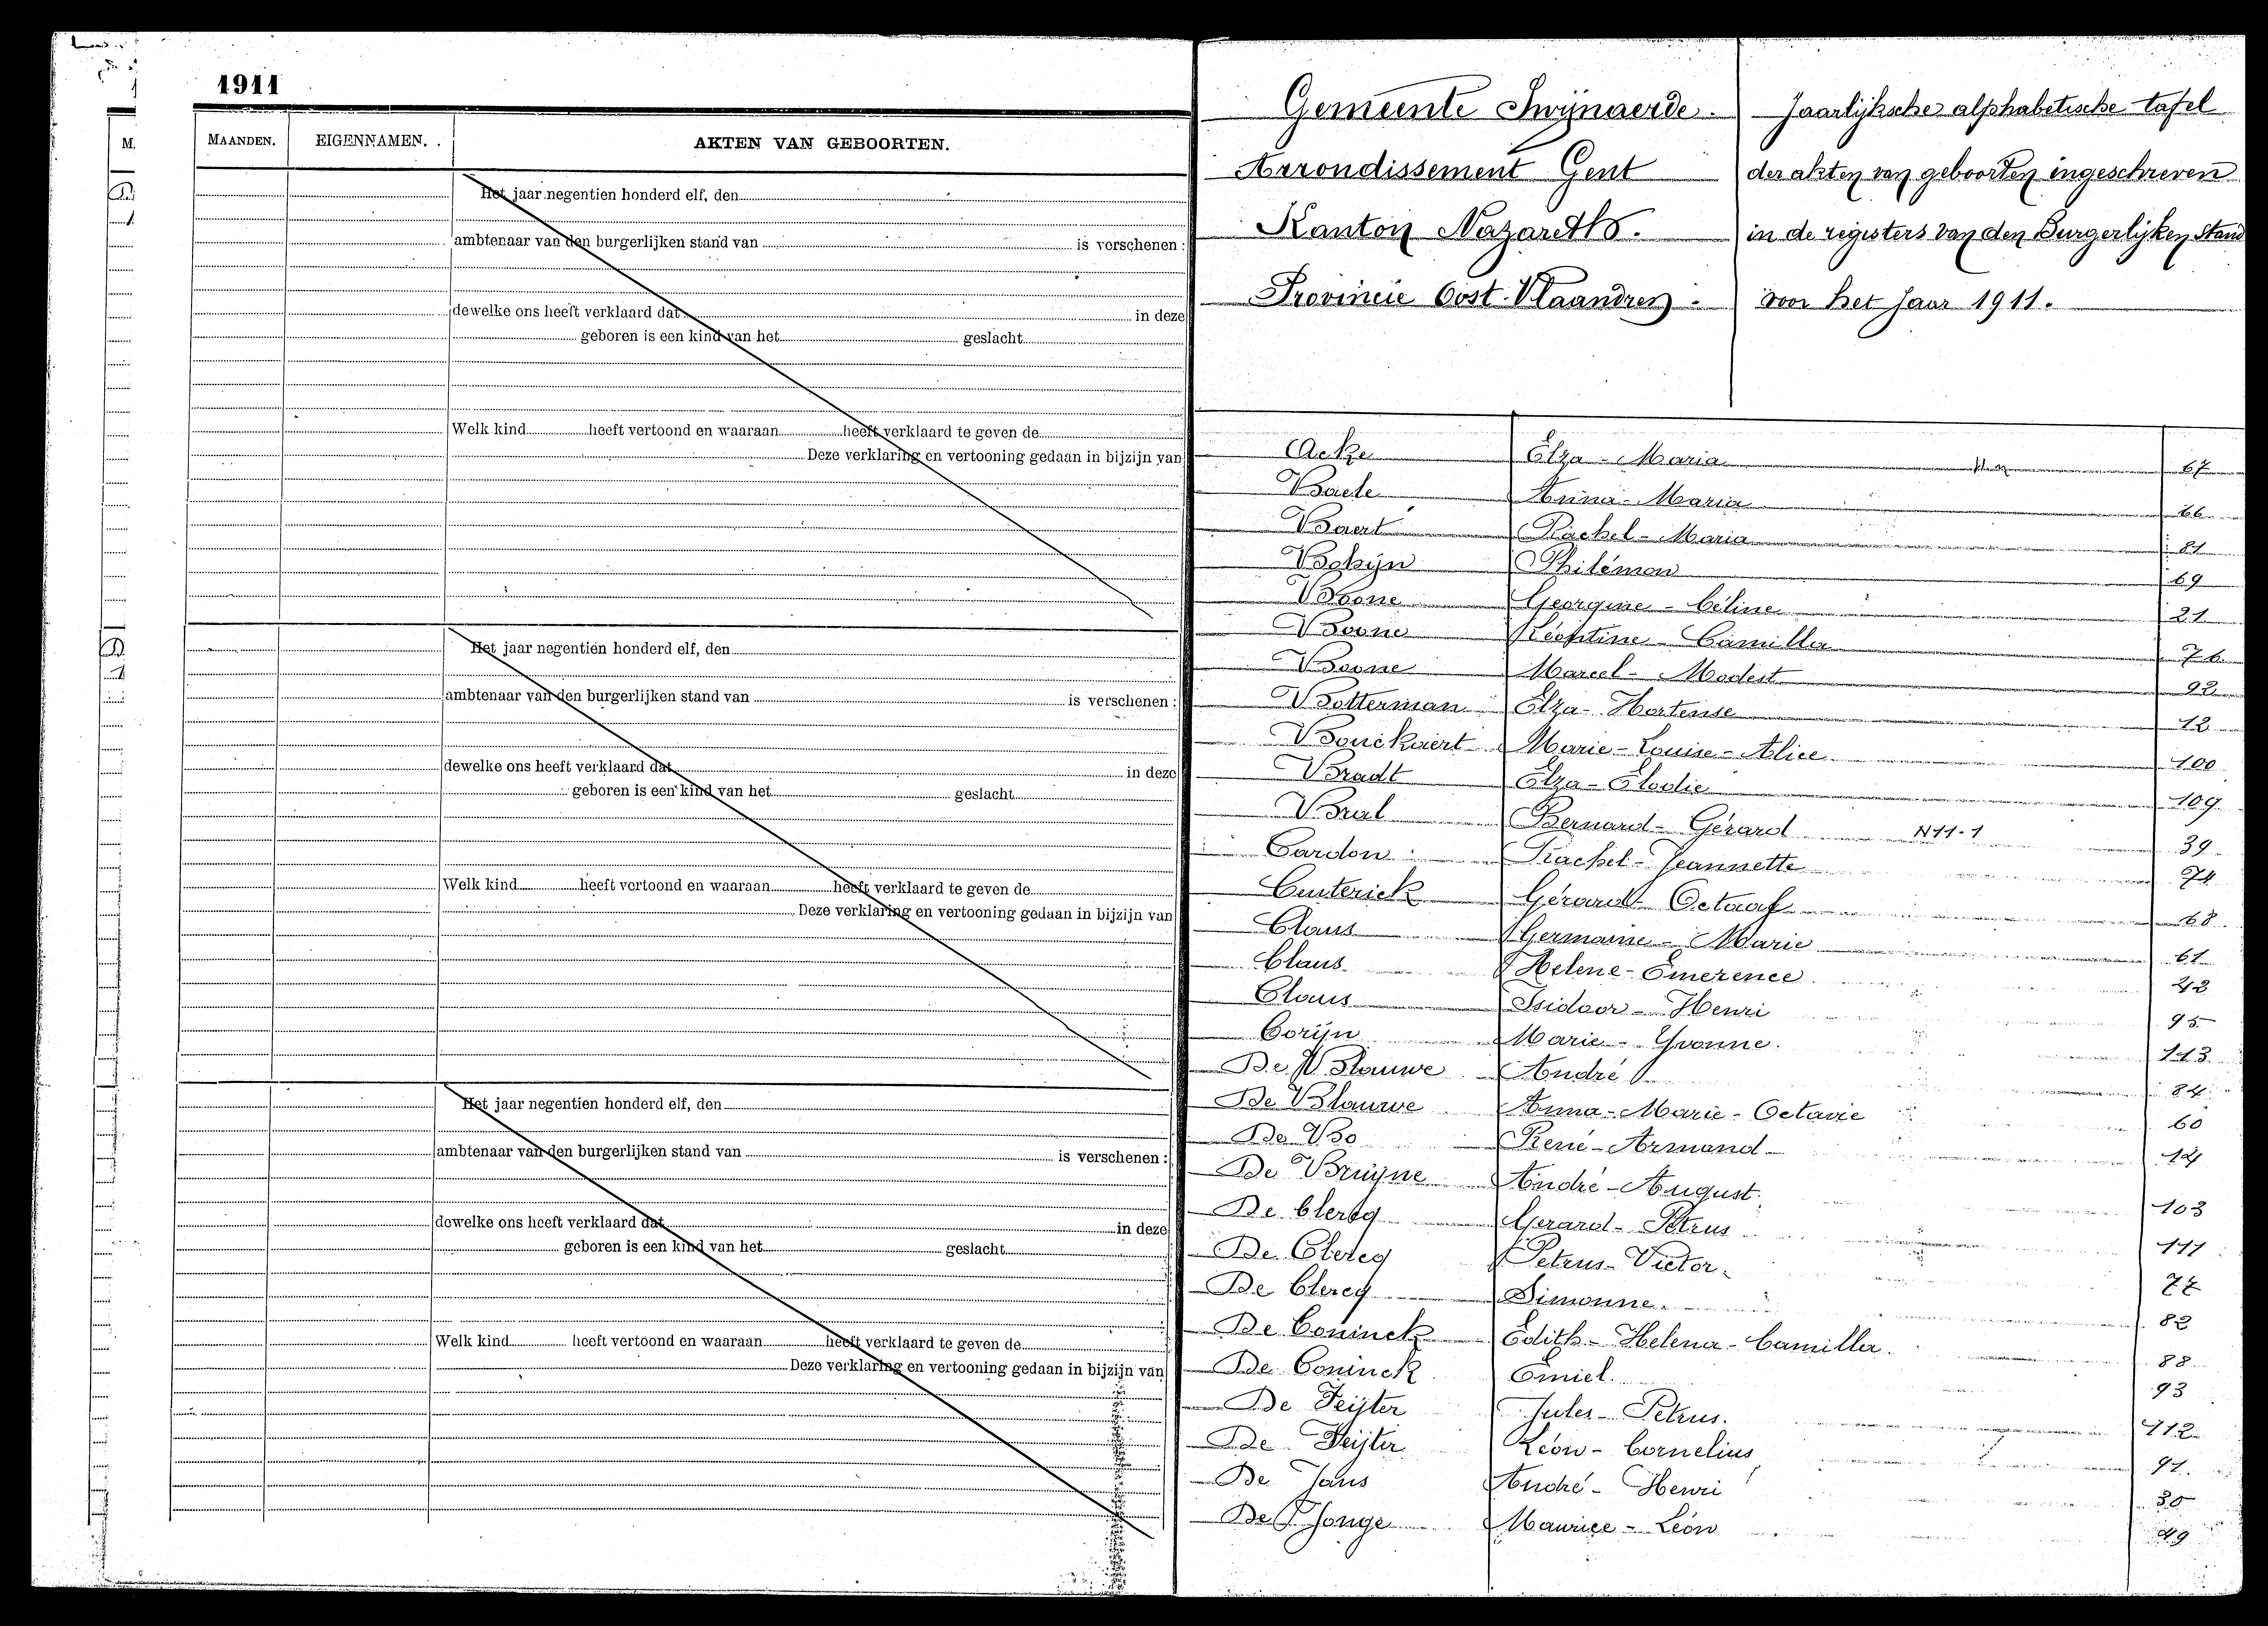 1911
MAANDEN. EIGENNAMEN. AKTEN VAN GEBOORTEN.
Het jaar negentien honderd elf, den
ambtenaar van den burgerlijken stand van is verschenen :
dewelke ons heeft verklaard dat in deze
geboren is een kind van het geslacht
Welk kind heeft vertoond en waaraan heeft verklaard te geven de
Deze verklaring en vertooning gedaan in bijzijn van
Het jaar negentien honderd elf, den
ambtenaar van den burgerlijken stand van is verschenen :
dewelke ons heeft verklaard dat in deze
geboren is een kind van het geslacht
Welk kind heeft vertoond en waaraan heeft verklaard te geven de
Deze verklaring en vertooning gedaan in bijzijn van
Het jaar negentien honderd elf, den
ambtenaar van den burgerlijken stand van is verschenen :
dewelke ons heeft verklaard dat in deze
geboren is een kind van het geslacht
Welk kind heeft vertoond en waaraan heeft verklaard te geven de
Deze verklaring en vertooning gedaan in bijzijn van
Gemeente Zwijnaerde.
Arrondissement Gent
Kanton Nazareth.
Provincie Oost-Vlaandren.
Jaarlijksche alphabetische tafel
der akten van geboorten ingeschreven
in de registers van den Burgerlijken Stand
voor het Jaar 1911.
Acke Elza - Maria 67
Baele Anna - Maria 66
Baert Rachel - Maria 81
Bohijn Philémon 69
Boone Georgine - Céline 21
Boone Léontine - Camilla 76
Boone Marcel - Modest 92
Botterman Elza - Hortense 12
Bouckaert Marie - Louise - Alice 100
Bradt Elza - Elodie 109
Bral Bernard - Gérard N11-1 39
Cardon Rachel - Jeannette 74
Centerick Gérard Octaaf 68
Claus Germaine - Marie 61
Claus Helene - Emerence 42
Claus Isidoor - Henri 95
Corijn Marie - Yvonne. 113
De Blauwe André 84
De Blauwe Anna - Marie - Octavie 60
De Bo René - Armand 14
De Bruyne André - August 103
De Clercq Gerard - Petrus 111
De Clercq Petrus - Victor. 77
De Clercq Simonne. 82
De Coninck Edith - Helena - Camilla 88
De Coninck Emiel. 93
De Feijter Jules - Petrus. 112
De Feijter Léon - Cornelius 91
De Jans André - Henri 30
De Jonge Maurice - Léon 49